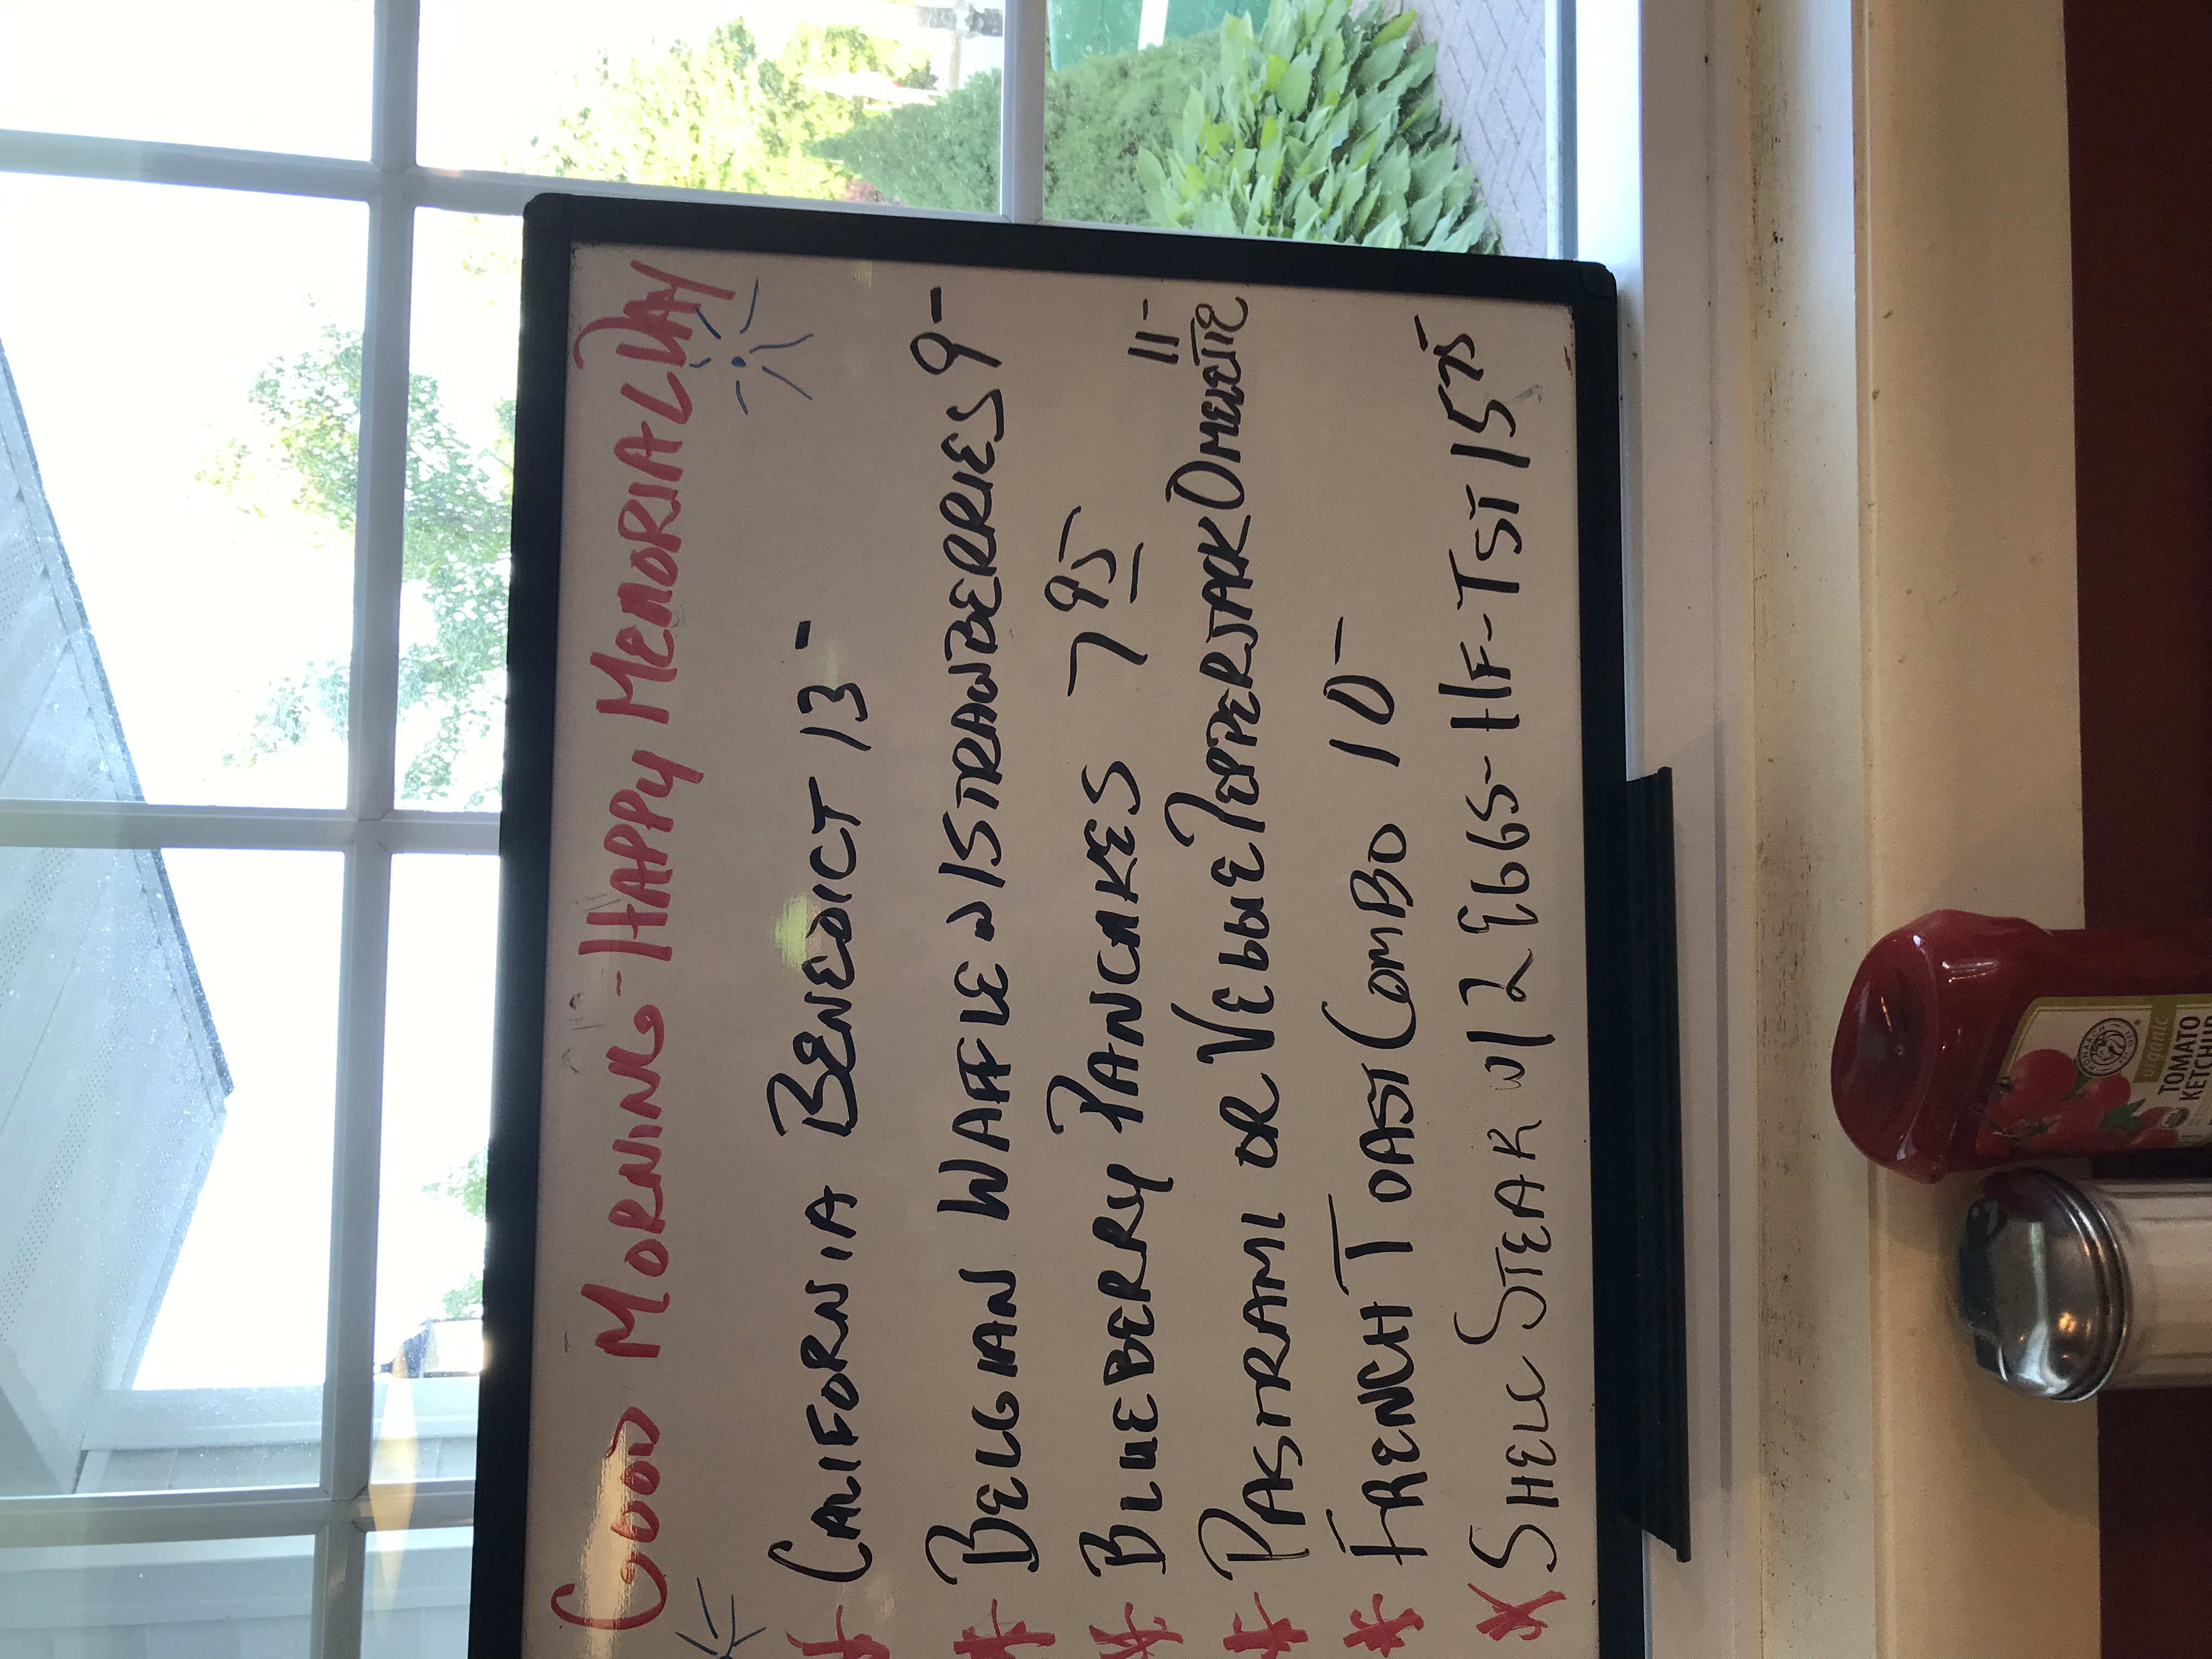 GOOD MORNING - HAPPY MEMORIAL DAY
* CALIFORNIA BENEDICT 13-
* BELGIAN WAFFLE W/STRAWBERRIES 9-
* BLUEBERRY PANCAKES 7 95
* PASTRAMI OR VEGGIE PEPPERJAK OMELETTE 11-
* FRENCH TOAST COMBO 10-
* SHELL STEAK W/ 2 EGGS-HF-TST 15 75
organic
TOMATO
KETCHUP